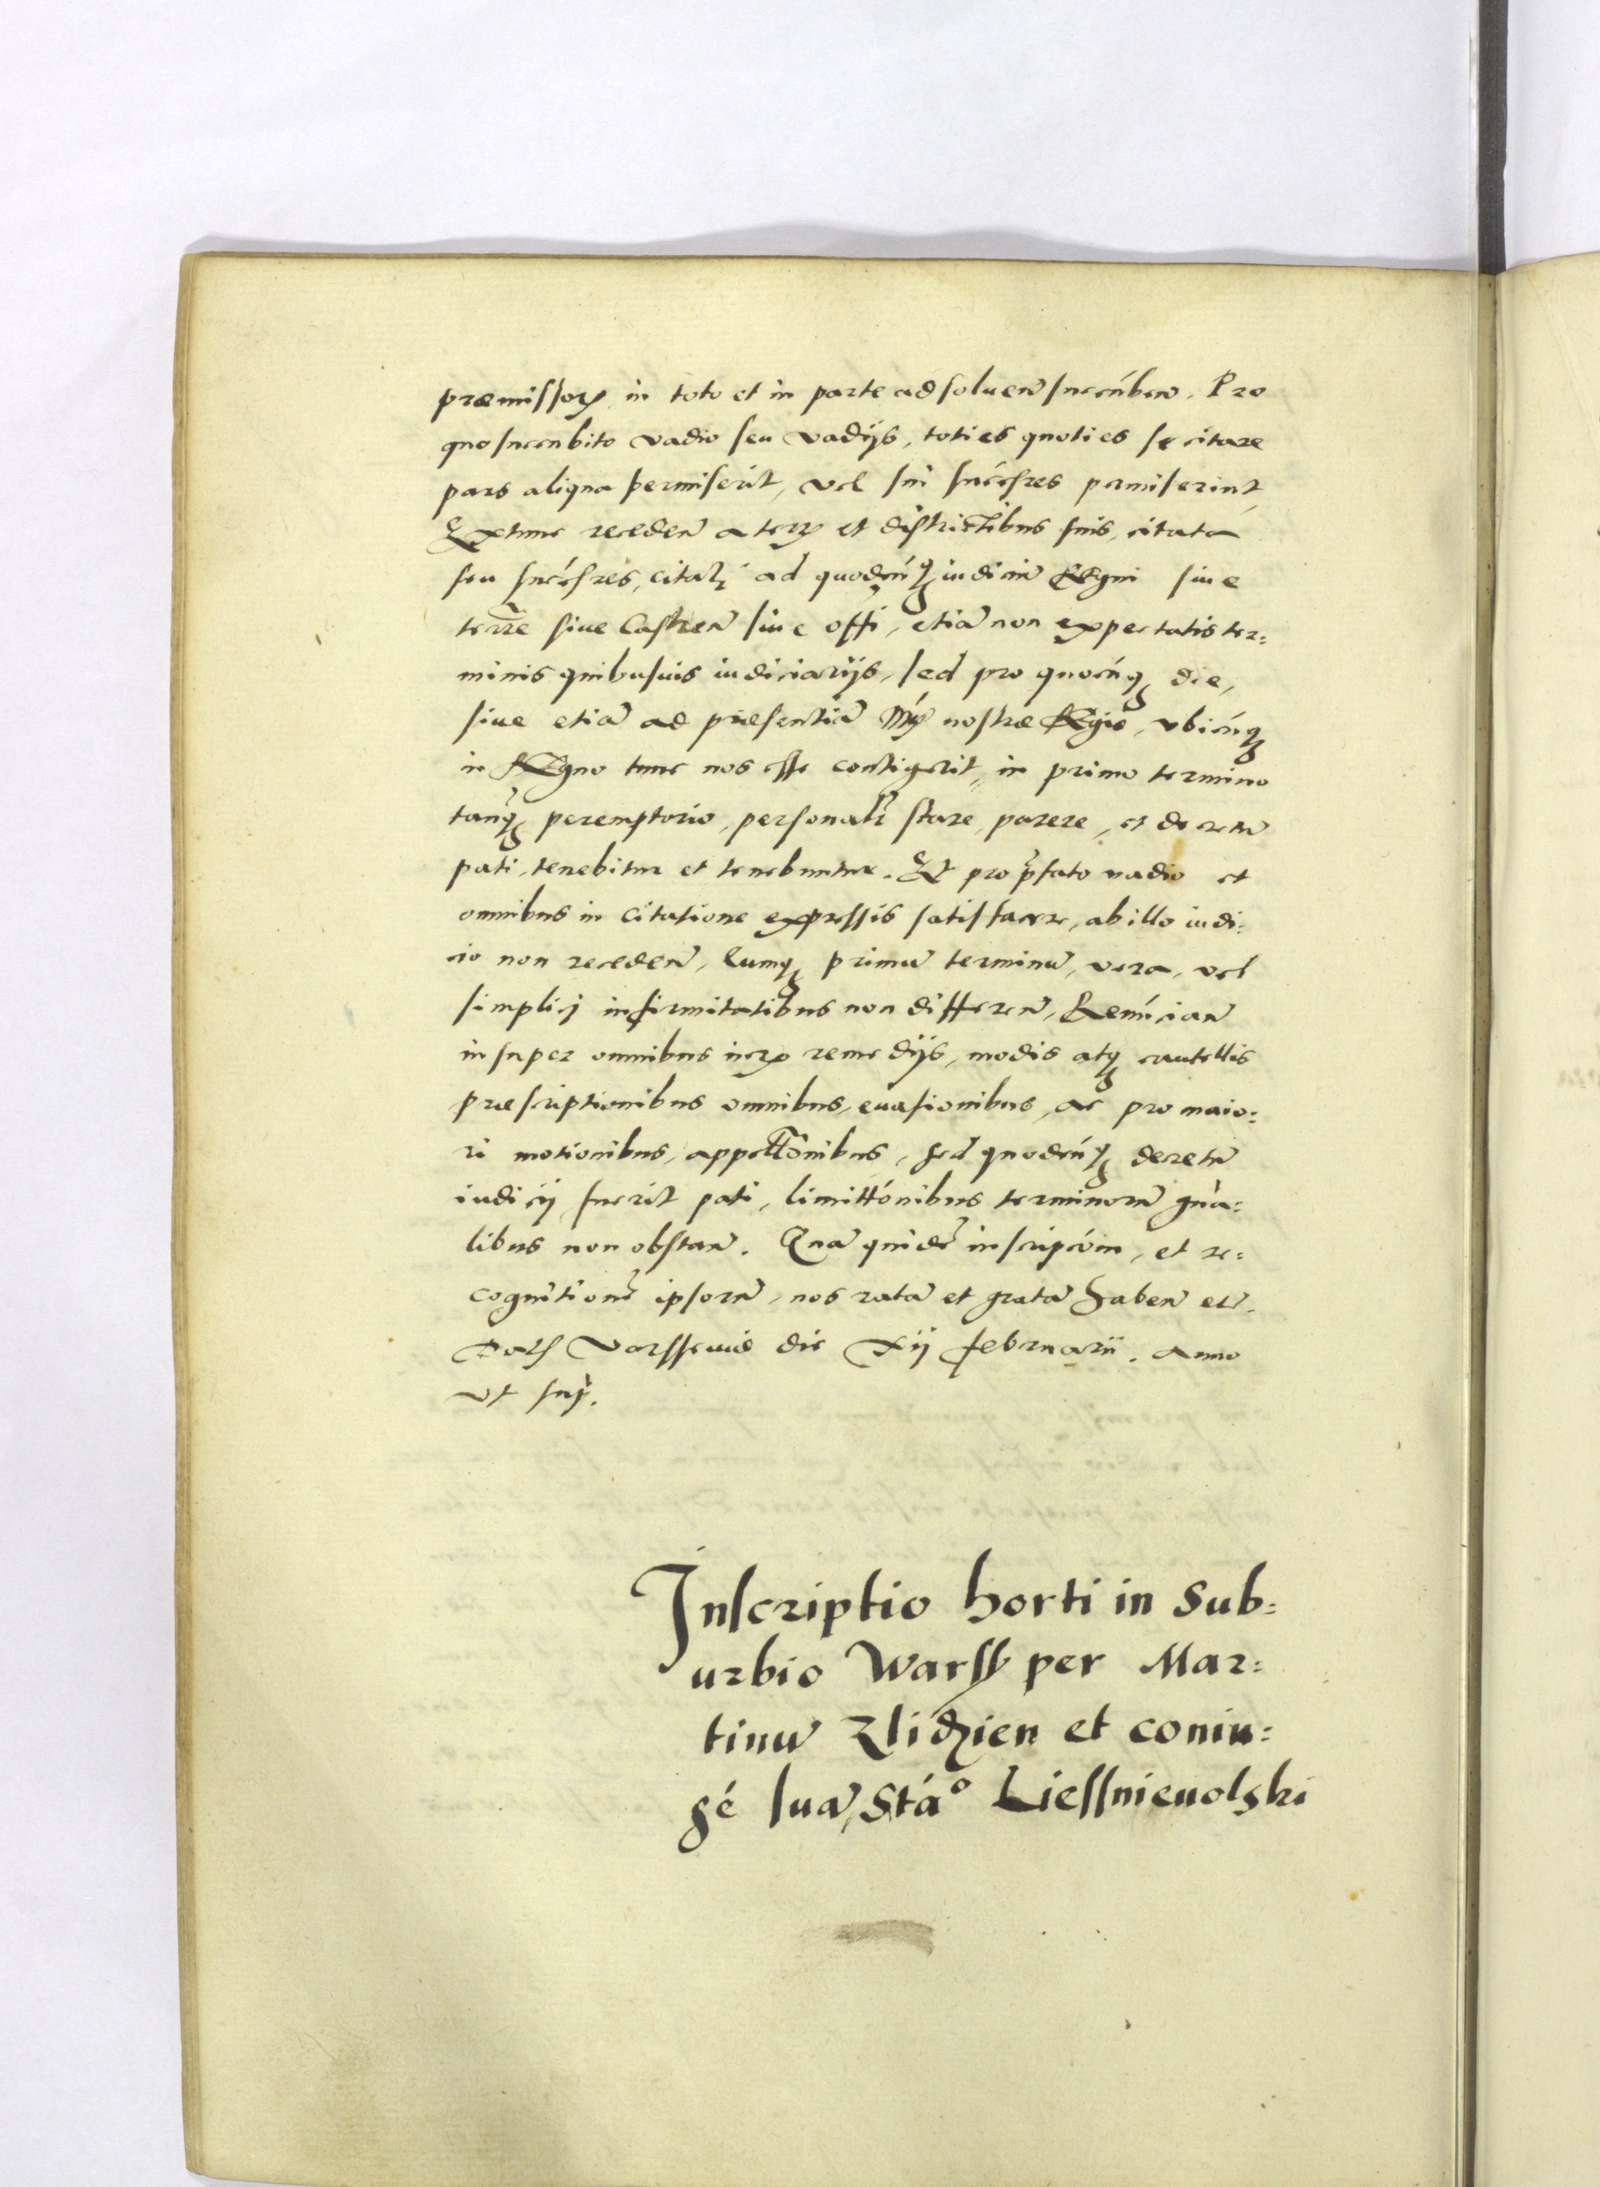 præmissorꝝ in toto et in parte ad soluen̄ succúben̄. Pro
quo succubito vadio seu vadijs, toties quoties se citare
pars aliqua permiserit, vel sui succéssres permiserint,
Extunc receden̄ a terrꝝ et districtibus suis, citata
seu succéssres, citatj ad quodcúnqꝫ iudiciū Regni siue
terrē siue Castren̄ siue offi, etiā non expectatis ter=
minis quibusuis iudiciarijs, sed pro quocúnqꝫ die,
siue etiā ad præsentiā Mtis nostræ Regiæ, vbicúnqꝫ
in Regno tunc nos esse contigerit, in primo termino
tanqꝫ peremptorio, personalr̄ stare, parere, et decretū
pati, tenebitur et tenebuntur. Et pro p̄fato vadio et
omnibus in citatione expressis satisfacere, ab illo iudi=
cio non receden̄, Eumqꝫ primū terminū, vera, vel
simplici infirmitatibus non differen̄, Renúcian̄
insuper omnibus iurꝝ remedijs, modis atqꝫ cautellis
præscriptionibus omnibus, euasionibus, ac pro maio=
ri motionibus, appellōnibus, sed quodcúnqꝫ decretū
iudicij fuerit pati, limittónibus terminorū gn̄a=
libus non obstan̄. Quā quidē inscripcóm, et re=
cognitionē ipsorū, nos ratā et gratā haben̄ etc.
Dat Varsseuiæ die xij februarii. anno
vt sup̄.
Inscriptio horti in sub=
urbio Warss per Mar=
tinū Zlidzien et coniu=
gé suā, Stáo Liessnieuolski